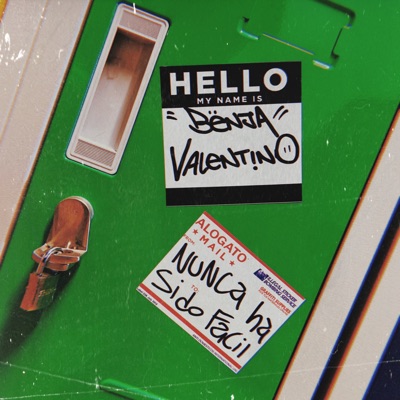 HELLO
MY NAME IS
"BënJA"
VALENT!NO
ALOGATO
★ MAIL ★
FROM
TO
NUNCA hA
Sido FáCil